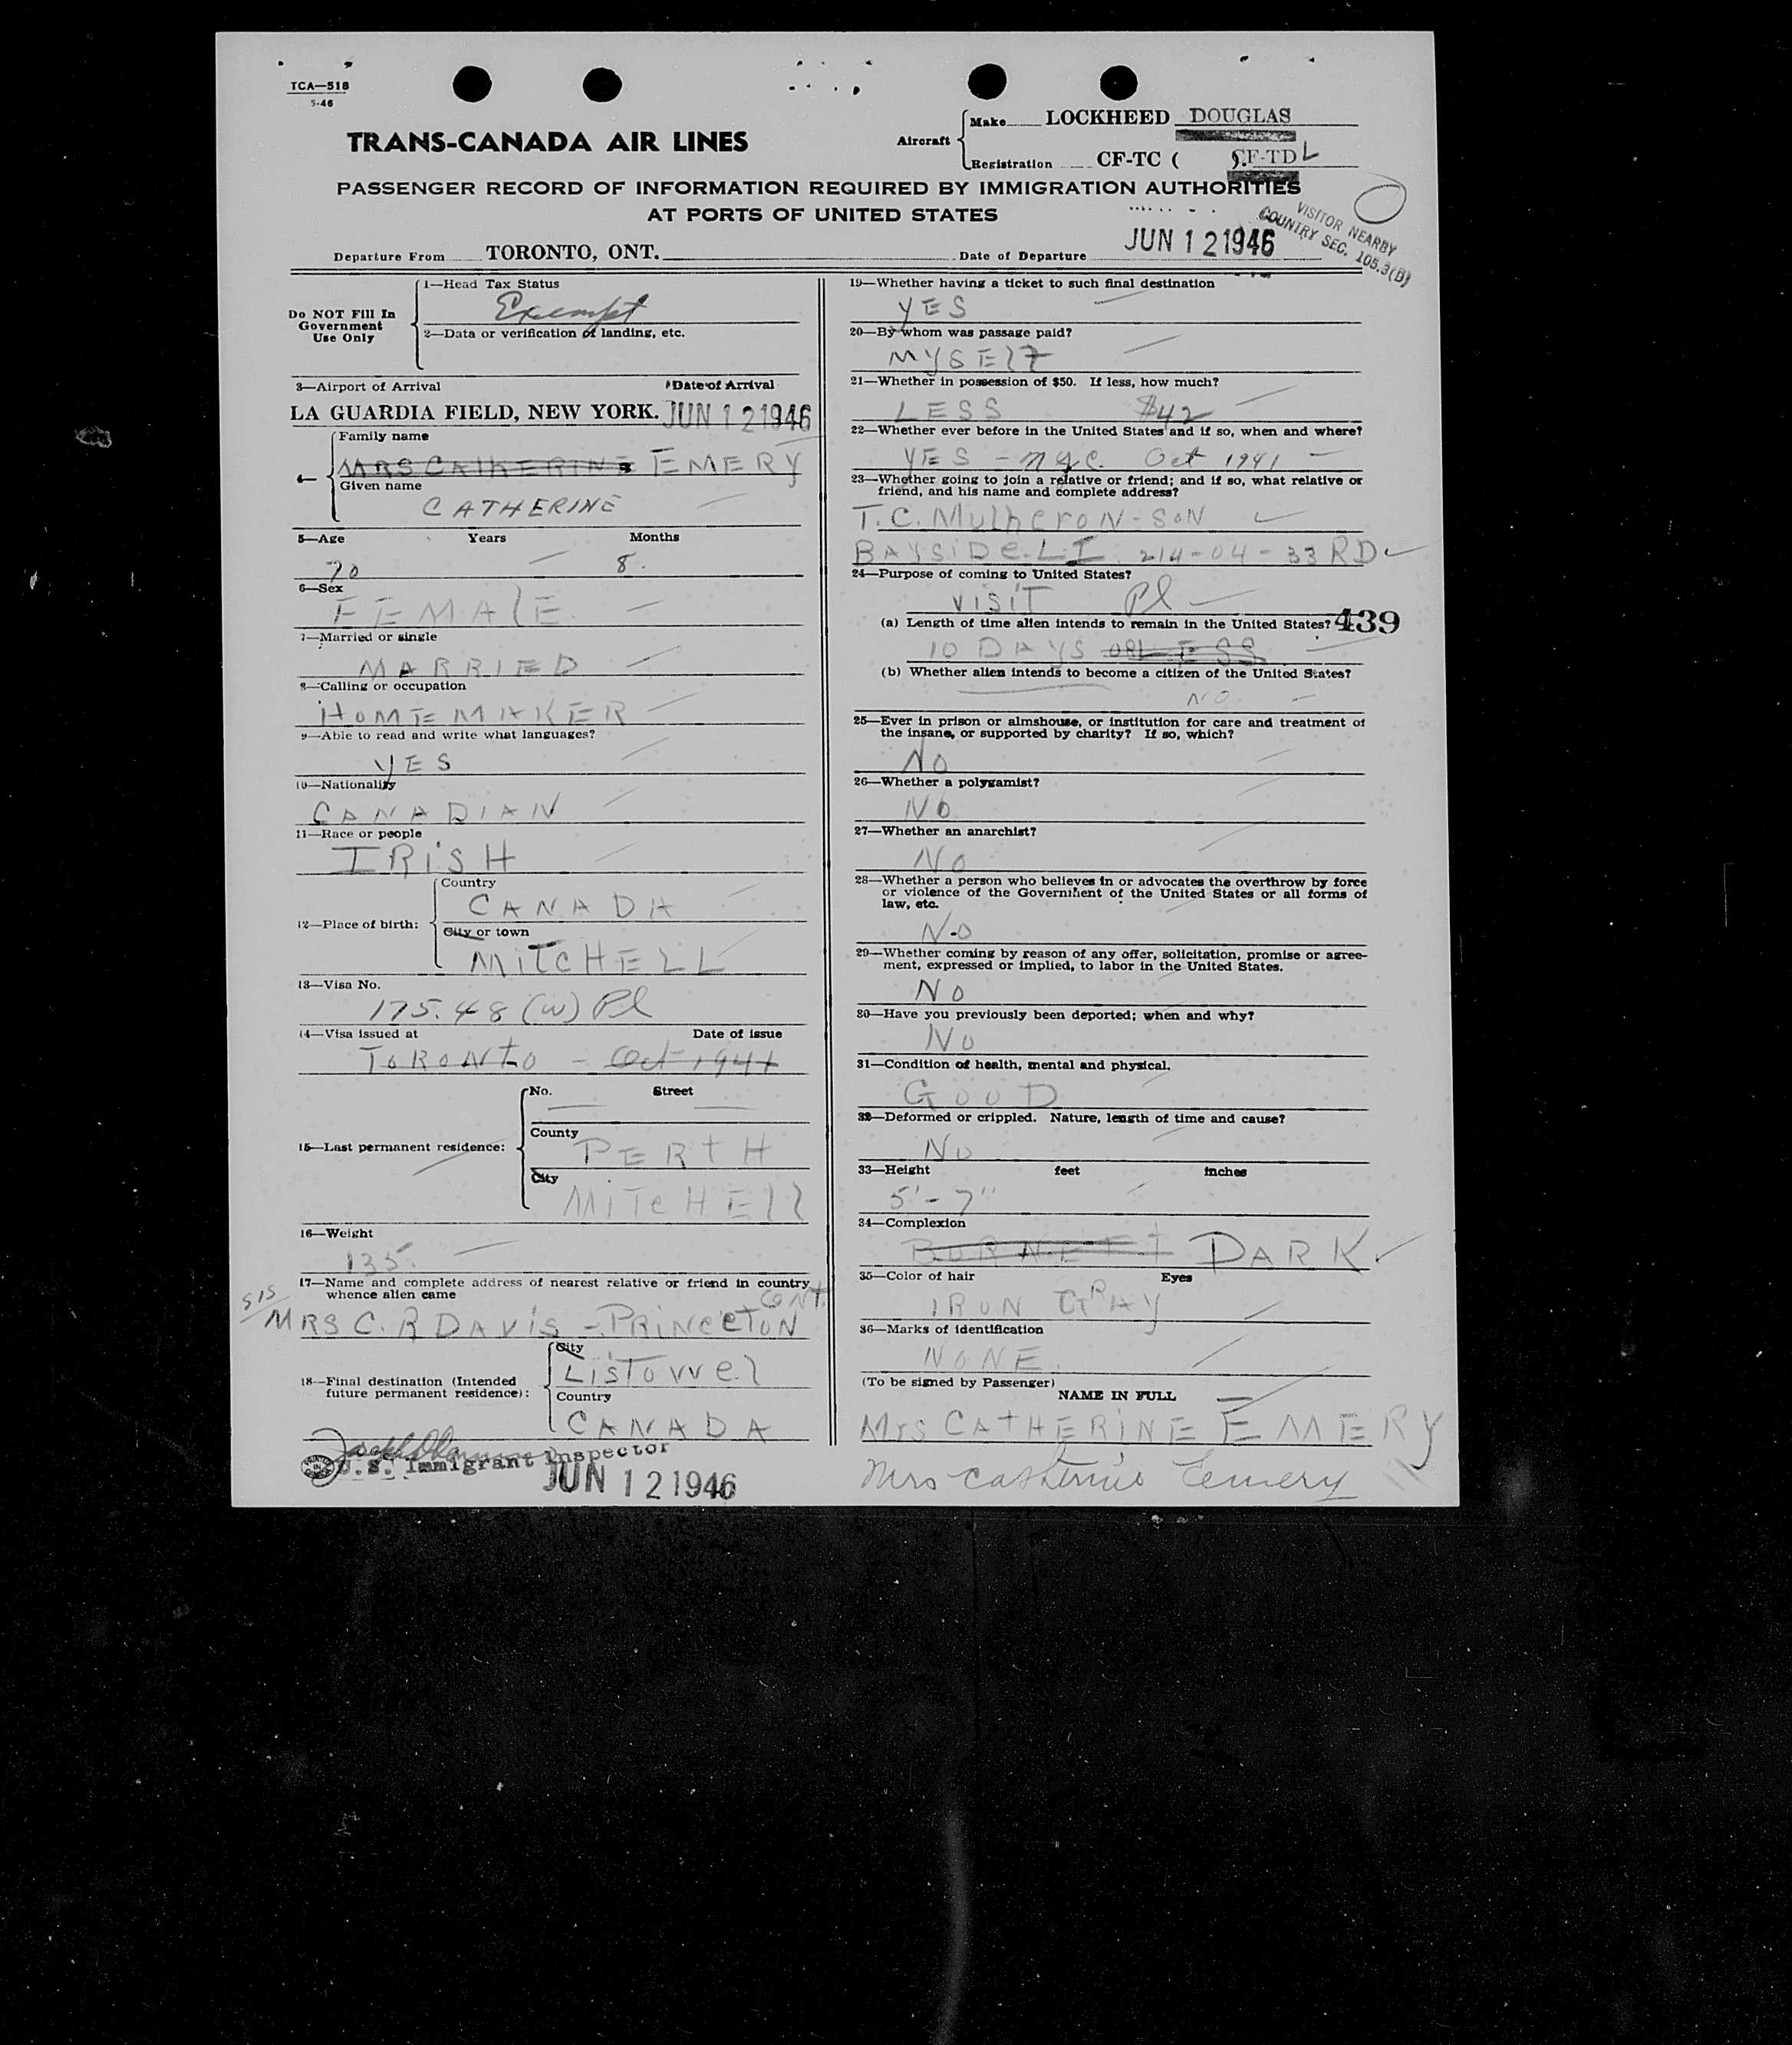 TCA—518
5-46
TRANS-CANADA AIR LINES
Aircraft
Make LOCKHEED DOUGLAS
Registration CF-TC ( ). CF-TDL
PASSENGER RECORD OF INFORMATION REQUIRED BY IMMIGRATION AUTHORITIES
AT PORTS OF UNITED STATES
VISITOR NEARBY
COUNTRY SEC. 105.3(B)
Departure From TORONTO, ONT. Date of Departure JUN 12 1946
Do NOT Fill In
Government
Use Only
1—Head Tax Status
Exempt
2—Data or verification of landing, etc.
3—Airport of Arrival Date of Arrival
LA GUARDIA FIELD, NEW YORK. JUN 12 1946
4—
Family name
MRS CATHERINE EMERY
Given name
CATHERINE
5—Age Years Months
70 8.
6—Sex
FEMALE
7—Married or single
MARRIED
8—Calling or occupation
HOMEMAKER
9—Able to read and write what languages?
YES
10—Nationality
CANADIAN
11—Race or people
IRiSH
12—Place of birth:
Country
CANADA
City or town
MiTCHELL
13—Visa No.
175.48 (W) Pl
14—Visa issued at Date of issue
TORONTO - Oct 1941
15—Last permanent residence:
No. Street
County
PERTH
City
MiTcHEll
16—Weight
135.
17—Name and complete address of nearest relative or friend in country
whence alien came
SIS ONT.
MRS C. R DAVIS - PRINCETON
18—Final destination (Intended
future permanent residence):
City
LiSTOWel
Country
CANADA
U. S. Immigrant Inspector
JUN 12 1946
19—Whether having a ticket to such final destination
YES
20—By whom was passage paid?
MYSElF
21—Whether in possession of $50. If less, how much?
LESS $42
22—Whether ever before in the United States and if so, when and where?
YES - NYC. Oct 1941
23—Whether going to join a relative or friend; and if so, what relative or
friend, and his name and complete address?
T.C. MulheroN - SoN
BAYSiDe. L I 214-04-33 RD
24—Purpose of coming to United States?
ViSiT Pl
(a) Length of time alien intends to remain in the United States? 439
10 DAYS OR LESS
(b) Whether alien intends to become a citizen of the United States?
NO
25—Ever in prison or almshouse, or institution for care and treatment of
the insane, or supported by charity? If so, which?
NO
26—Whether a polygamist?
NO
27—Whether an anarchist?
NO
28—Whether a person who believes in or advocates the overthrow by force
or violence of the Government of the United States or all forms of
law, etc.
NO
29—Whether coming by reason of any offer, solicitation, promise or agree-
ment, expressed or implied, to labor in the United States.
NO
30—Have you previously been deported; when and why?
NO
31—Condition of health, mental and physical.
GOOD
32—Deformed or crippled. Nature, length of time and cause?
NO
33—Height feet inches
5'-7"
34—Complexion
BURNETT DARK
35—Color of hair Eyes
IRON GRAY
36—Marks of identification
NONE
(To be signed by Passenger)
NAME IN FULL
Mrs CATHERiNE EMERY
Mrs Catherine Emery